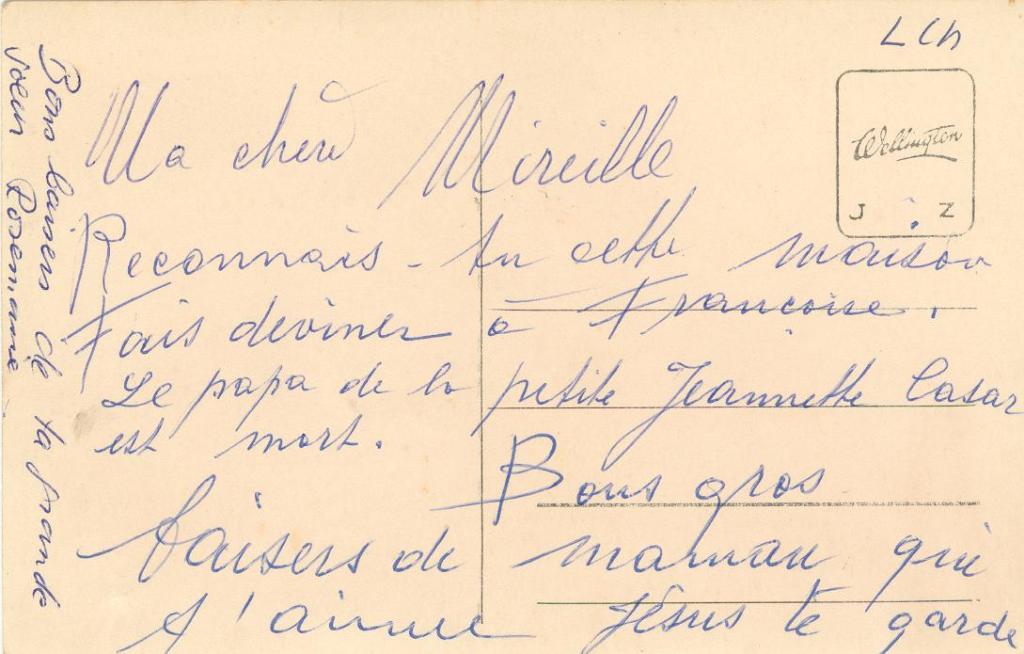 LCh
Wellington
J Z
Ma chère Mireille
Reconnais-tu cette maison
Fais deviner à Françoise.
Le papa de la petite Jeannette Casar
est mort.
Bons gros
baisers de maman qui
t'aime Jésus te garde
Bons baisers de ta grande
soeur Rosemarie